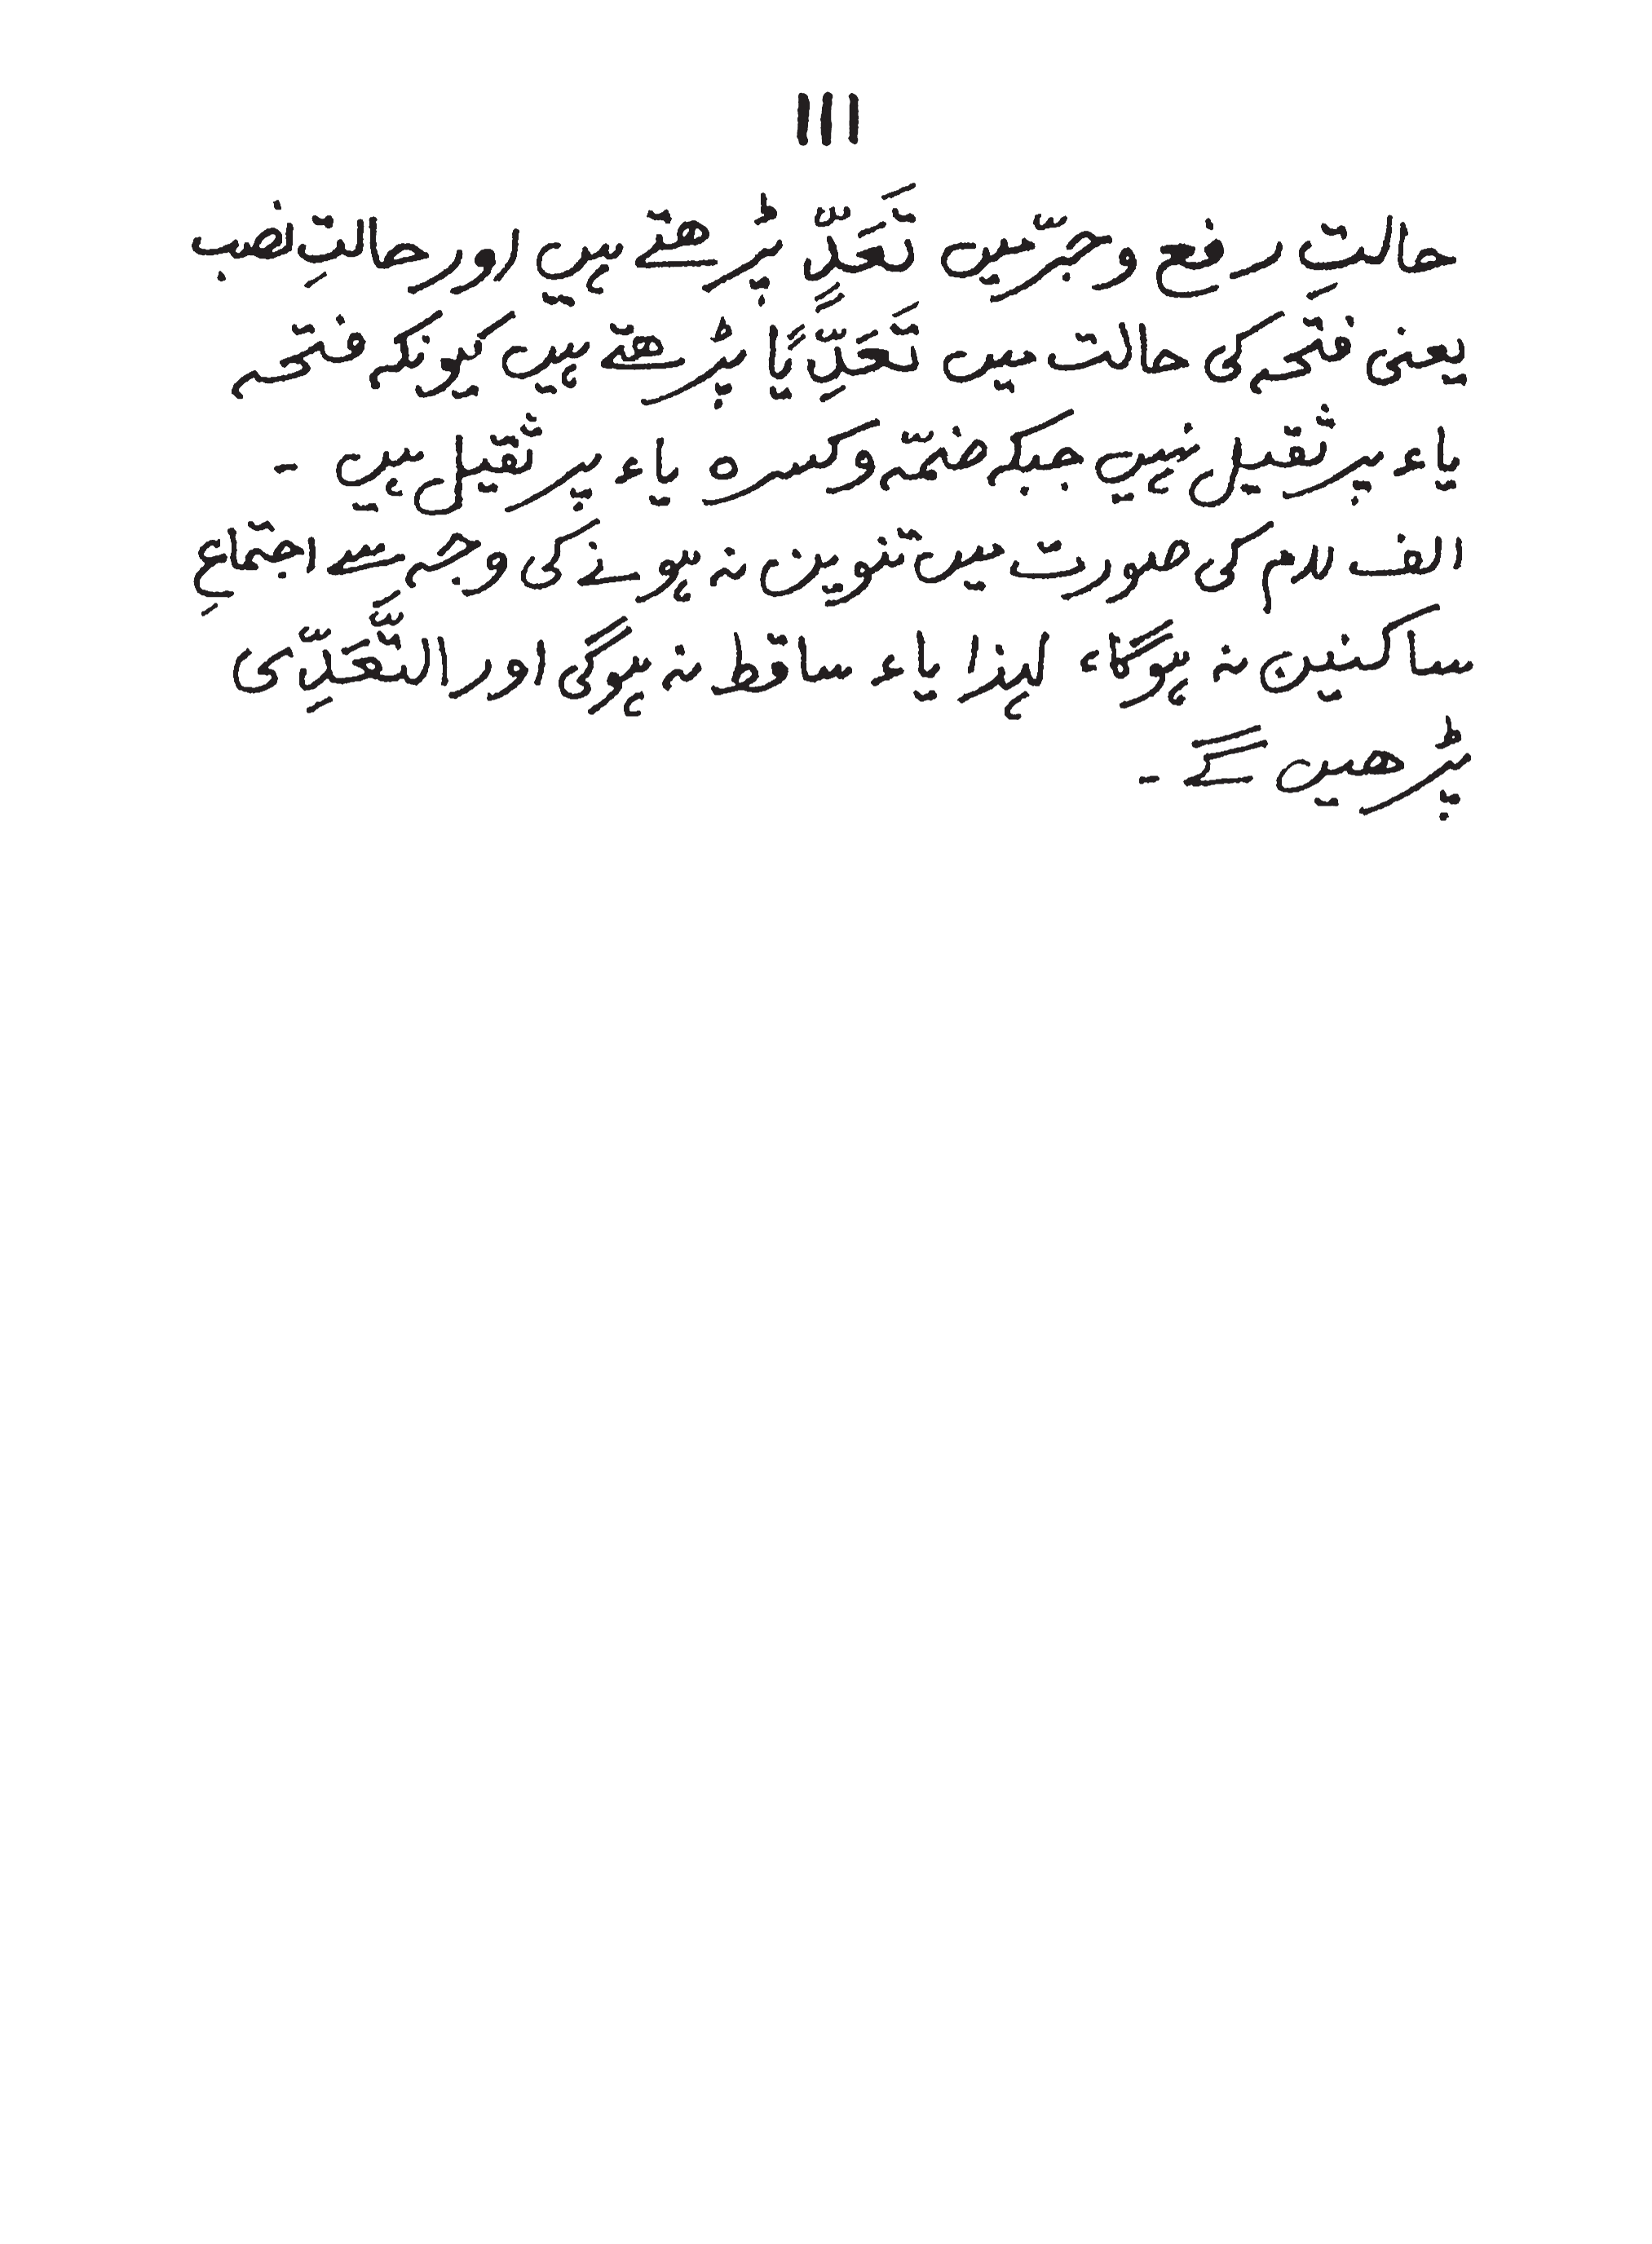 ۱۱۱
حالتِ رفع وجرّ میں تَعَدٍّ پڑھتے ہیں اور حالتِ نصب
یعنی فتحہ کی حالت میں تَعَدِّيًا پڑھتے ہیں کیونکہ فتحہ
یاء پر ثقیل نہیں جبکہ ضمّہ وکسرہ یاء پر ثقیل ہیں ۔
الف لام کی صورت میں تنوین نہ ہونے کی وجہ سے اجتماعِ
ساکنین نہ ہوگا، لہذا یاء ساقط نہ ہوگی اور التَّعَدِّی
پڑھیں گے ۔